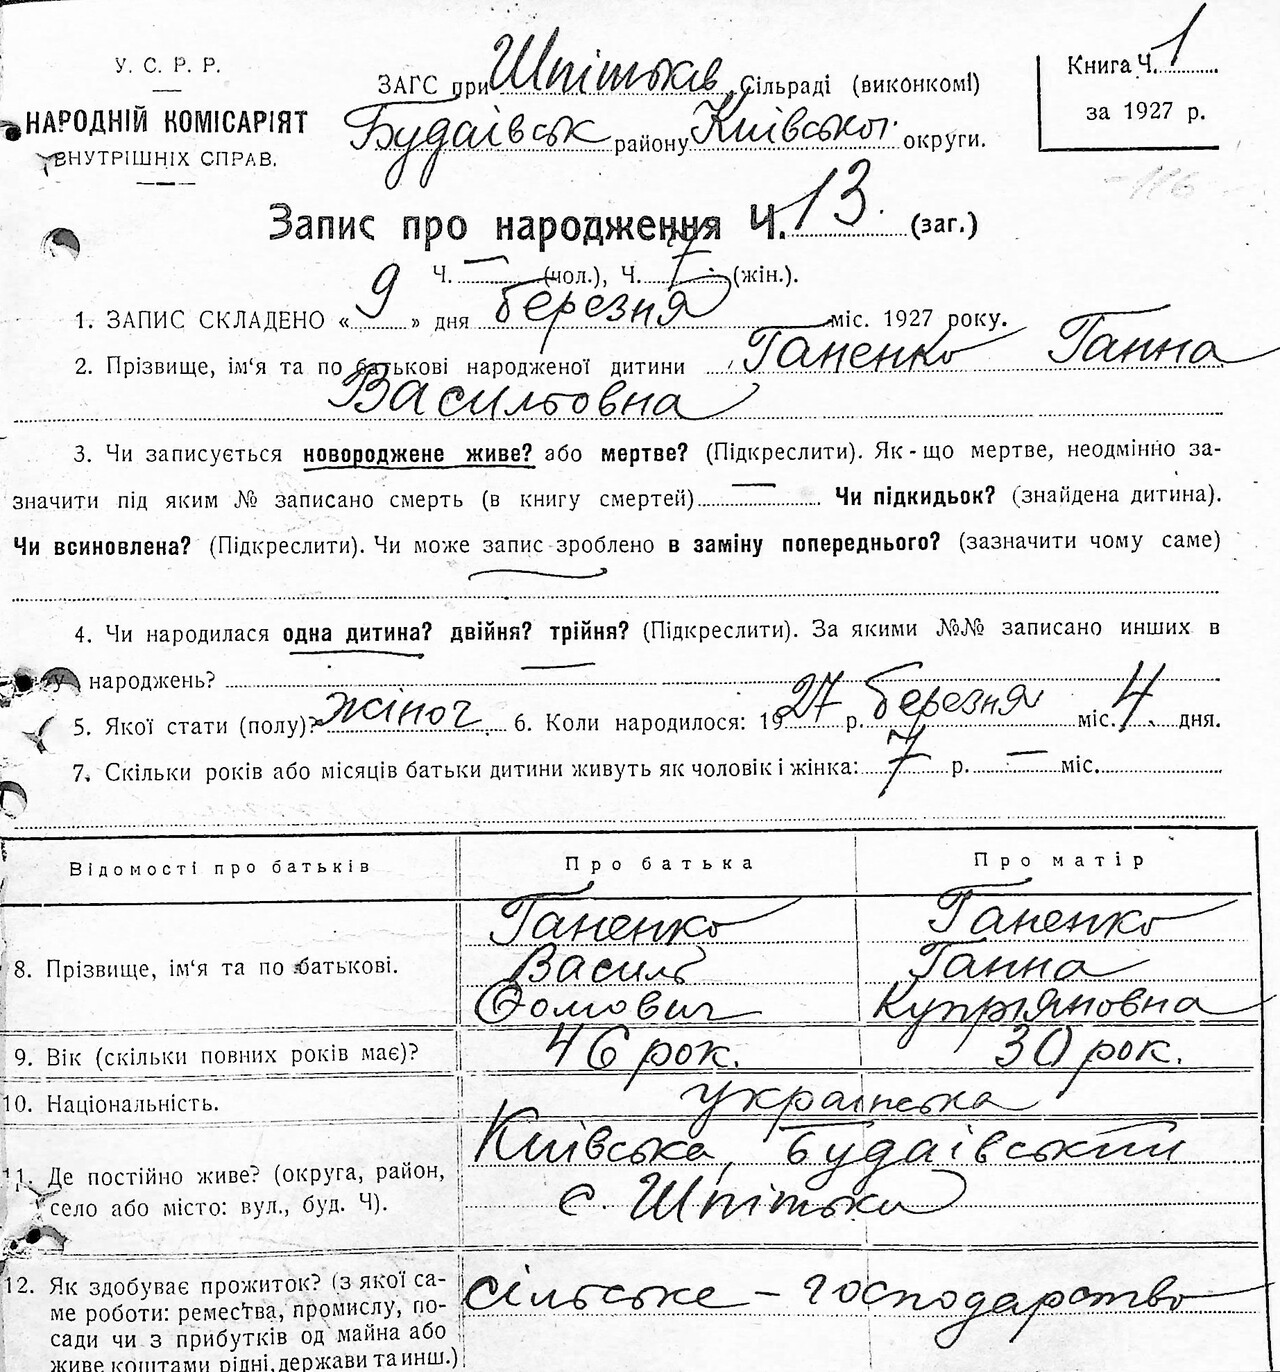 У. С. Р. Р.
НАРОДНІЙ КОМІСАРІЯТ
ВНУТРІШНІХ СПРАВ.
ЗАГС при Шпітьків Сільраді (виконкомі)
Будаївськ району Київської округи.
Книга Ч. 1
за 1927 р.
Запис про народження Ч. 13. (заг.)
Ч. — (чол.), Ч. 7 (жін.).
1. ЗАПИС СКЛАДЕНО « 9 » дня березня міс. 1927 року.
2. Прізвище, ім‘я та по батькові народженої дитини Ганенко Ганна
Васильовна
3. Чи записується новороджене живе? або мертве? (Підкреслити). Як - що мертве, неодмінно за-
значити під яким № записано смерть (в книгу смертей) — Чи підкидьок? (знайдена дитина).
Чи всиновлена? (Підкреслити). Чи може запис зроблено в заміну попереднього? (зазначити чому саме)
4. Чи народилася одна дитина? двійня? трійня? (Підкреслити). За якими №№ записано инших в
народжень?
5. Якої стати (полу)? жіноч. 6. Коли народилося: 1927 р. березня міс. 4 дня.
7. Скільки років або місяців батьки дитини живуть як чоловік і жінка: 7 р. — міс.
Відомості про батьків Про батька Про матір
Ганенко Ганенко
8. Прізвище, ім‘я та по батькові. Василь Ганна
Фомович Купріяновна
9. Вік (скільки повних років має)? 46 рок. 30 рок.
10. Національність. українська
Київська, Будаївський
11. Де постійно живе? (округа, район,
село або місто: вул., буд. Ч). с. Шпітьки
12. Як здобуває прожиток? (з якої са- сільське – господарство
ме роботи: ремества, промислу, по-
сади чи з прибутків од майна або
живе коштами рідні, держави та инш.)